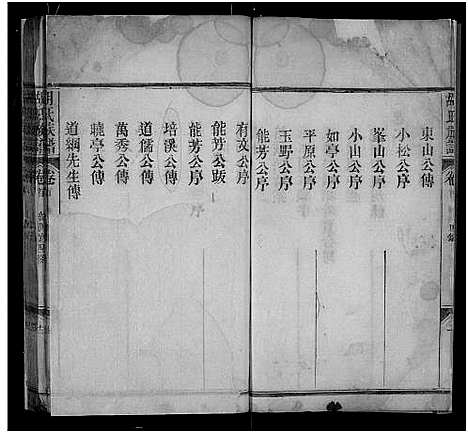 東山公傳
小松公序
峯山公序
小山公序
如亭公序
平原公序
玉野公序
能芳公序
有文公序
能芳公跋
能芳公序
培溪公傳
道儒公傳
萬秀公傳
曉亭公傳
道綱先生傳
胡氏族譜